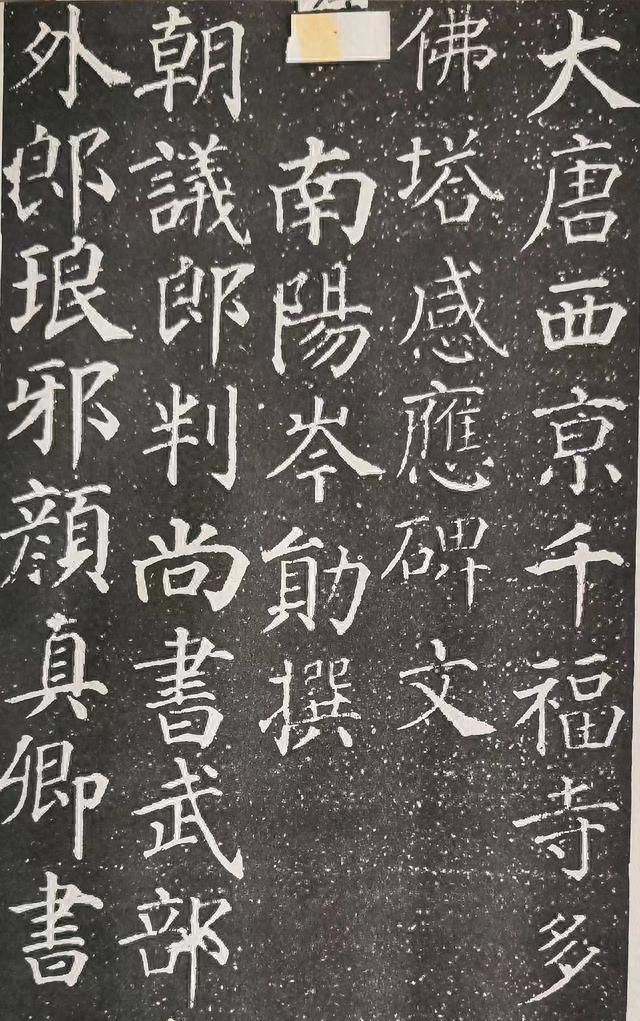 大唐西京千福寺多
佛塔感應碑文
南陽岑勛撰
朝議郎判尚書武部
外郎琅邪顏真卿書